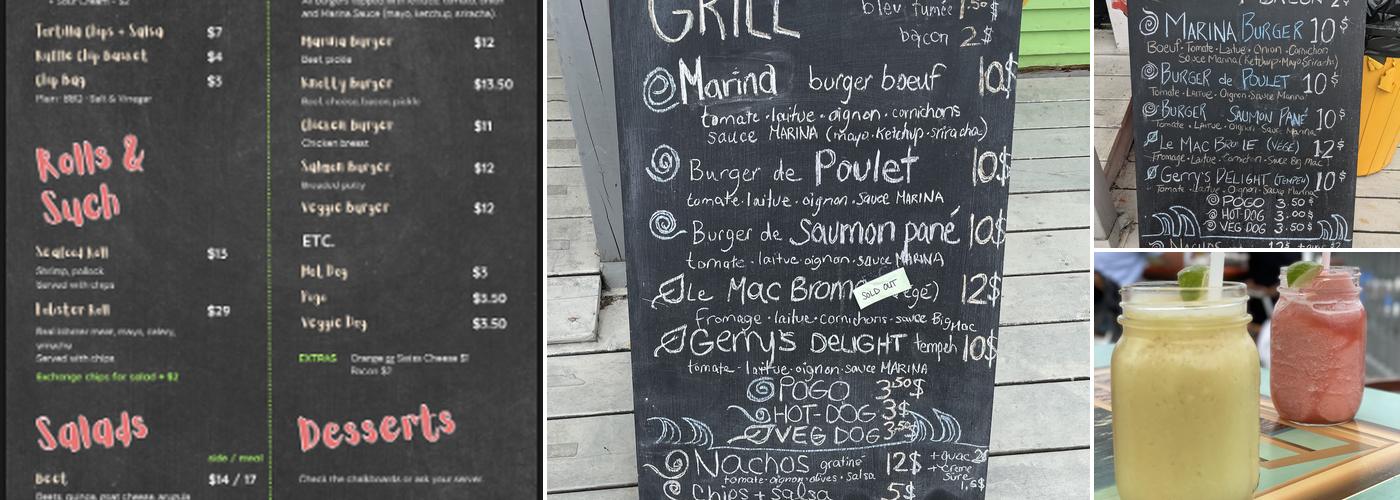 Sour Cream - $2
Tortilla Chips + Salsa $7
Kuttle Chip Basket $4
Chip Bag $3
Plain · BBQ · Salt & Vinegar
Rolls &
Such
Seafood Roll $15
Shrimp, pollock
Served with chips
Lobster Roll $29
Real lobster meat, mayo, celery,
sriracha
Served with chips
Exchange chips for salad + $2
Salads
side / meal
Beet $14 / 17
Beets, quinoa, goat cheese, arugula
and Marina Sauce (mayo, ketchup, sriracha).
Marina Burger $12
Beef, pickle
Knelly Burger $13.50
Beef, cheese, bacon, pickle
Chicken Burger $11
Chicken breast
Salmon Burger $12
Breaded patty
Veggie Burger $12
ETC.
Hot Dog $3
Pogo $3.50
Veggie Dog $3.50
EXTRAS Orange or Swiss Cheese $1
Bacon $2
Desserts
Check the chalkboards or ask your server.
GRILL
bleu fumée 1.50$
bacon 2$
Marina burger boeuf 10$
tomate · laitue · oignon · cornichons
sauce MARINA (mayo · Ketchup · sriracha)
Burger de Poulet 10$
tomate · laitue · oignon · sauce MARINA
Burger de Saumon pané 10$
tomate · laitue · oignon · sauce MARINA
Le Mac Brom égé) 12$
SOLD OUT
fromage · laitue · cornichons · sauce Big Mac
Gerry's DELIGHT tempeh 10$
tomate · laitue · oignon · sauce MARINA
POGO 3.50$
HOT-DOG 3$
VEG DOG 3.50$
Nachos gratiné 12$ + guac 2$
tomate · oignon · olives · salsa + crème sure 1,5$
Chips + salsa 5$
BACON 2$
MARINA BURGER 10$
Boeuf · Tomate · Laitue · Onion · Cornichon
Sauce Marina (Ketchup · Mayo Sriracha)
BURGER de POULET 10$
Tomate · Laitue · Oignon · Sauce Marina
BURGER SAUMON PANÉ 10$
Tomate · Laitue · Oignon · Sauce Marina
Le MAC BROMIE (VÉGÉ) 12$
Fromage · Laitue · Cornichon · Sauce Big Mac
Gerry's DELIGHT (TEMPEH) 10$
Tomate · Laitue · Oignon · Sauce Marina
POGO 3.50$
HOT-DOG 3.00$
VEG DOG 3.50$
NACHOS 12$